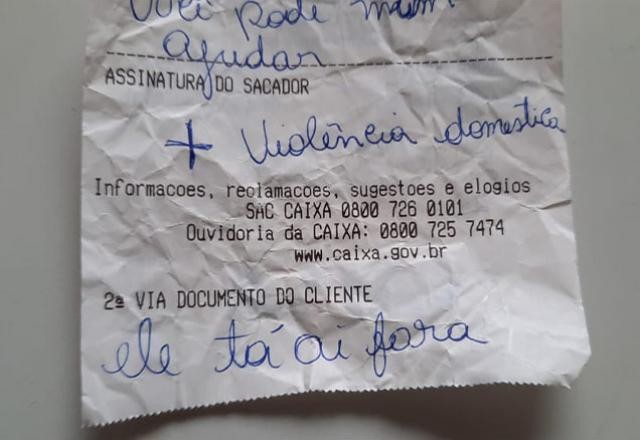 você pode
ajudar
ASSINATURA DO SACADOR
+ Violência domestica
Informacoes, reclamacoes, sugestoes e elogios
SAC CAIXA 0800 726 0101
Ouvidoria da CAIXA: 0800 725 7474
www.caixa.gov.br
2ª VIA DOCUMENTO DO CLIENTE
ele tá ai fora